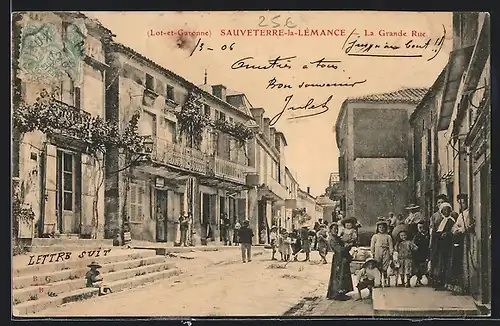 25E
(Lot-et-Garonne) SAUVETERRE-la-LÉMANCE La Grande Rue
1-3-06
Jusqu'au bout !!
Amitiés à tous
Bon souvenir
Jules
LETTRE SUIT
B G